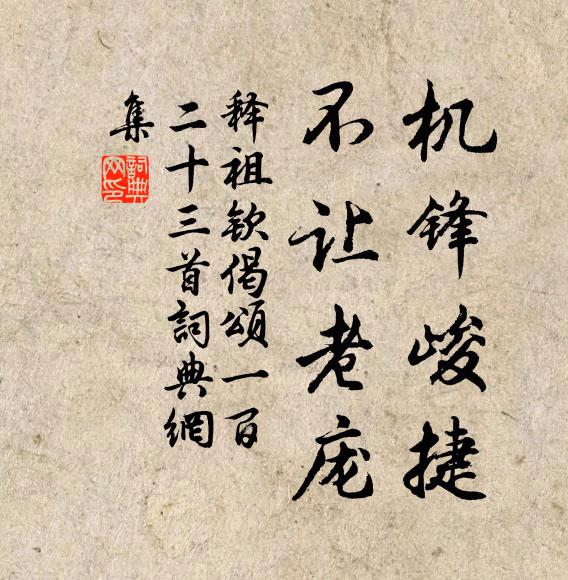 机锋峻捷
不让老庞
释祖钦偈颂一百
二十三首詞典網
集
詞典
网印